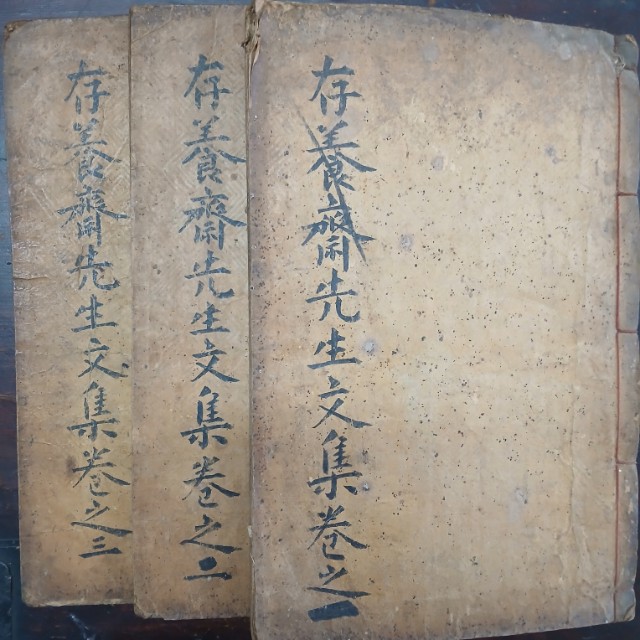 存養齋先生文集卷之一
存養齋先生文集卷之二
存養齋先生文集卷之三